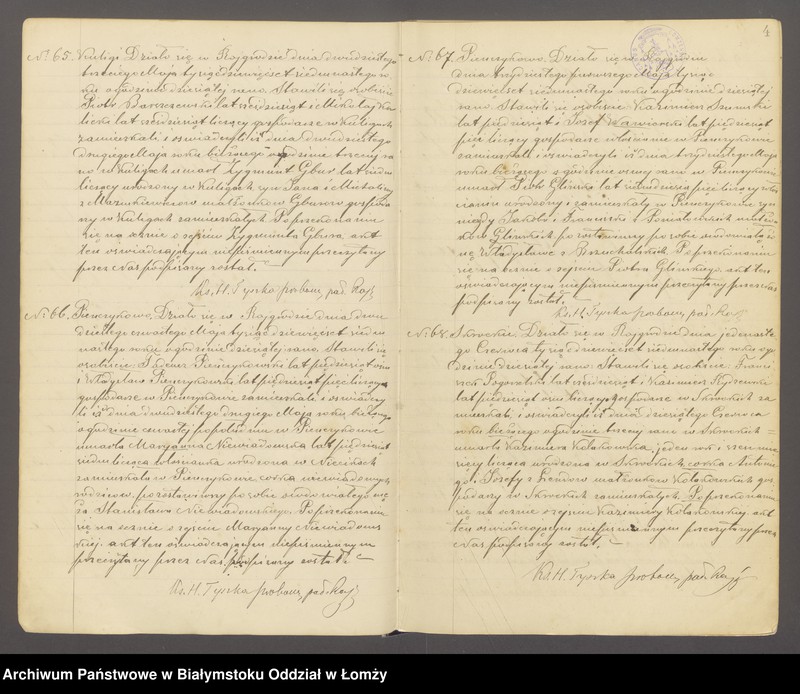 No 65. Kuligi. Działo się w Rajgrodzie dnia dwudziestego
trzeciego Maja tysiąc dziewięćset siedmnastego ro
ku o godzinie dziesiątej rano. Stawili się osobiście
Piotr lat sześdziesiąt i Mikołaj
lat sześdziesiąt liczący gospodarze w Kuligach
zamieszkali i oświadczyli iż dnia dwudziestego
drugiego Maja roku bieżącego o godzinie trzeciej ra
no w Kuligach umarł Zygmunt Gbur lat siedm
liczący urodzony w Kuligach, syn Jana i Michaliny
z małżonków Gburów gospoda
rzy w Kuligach zamieszkałych. Po przekonaniu
się naocznie o zejściu Zygmunta Gbura, akt
ten oświadczającym niepiśmiennym przeczytany
przez Nas podpisany został.
Ks. H. Tyszka probosz. par. Rajg
No 66. Pieńczykowo. Działo się w Rajgrodzie dnia dwu
dziestego ósmego Maja tysiąc dziewięćset siedm
nastego roku o godzinie dziesiątej rano. Stawili się
osobiście Pieńczykowski lat pięćdziesiąt
i Władysław Pieńczykowski lat pięćdziesiąt pięć liczący
gospodarze w Pieńczykowie zamieszkali i oświadczy
li iż dnia dwudziestego drugiego Maja roku bieżącego
o godzinie czwartej po południu w Pieńczykowie
umarła Maryanna Niewiadomska lat pięćdziesiąt
siedm licząca włościanka urodzona w
zamieszkała w Pieńczykowie córka niewiadomych
rodziców, pozostawiwszy po sobie owdowiałego mę
ża Stanisława Niewiadomskiego. Po przekonaniu
się naocznie o zejściu Maryanny Niewiadoms
kiej, akt ten oświadczającym niepiśmiennym
przeczytany przez Nas podpisany został.
Ks. H. Tyszka probosz. par. Rajg
4
No 67. Pieńczykowo. Działo się w Rajgrodzie
dnia trzydziestego pierwszego Maja tysiąc
dziewięćset siedmnastego roku o godzinie dziesiątej
rano. Stawili się osobiście Kazimierz
lat pięćdziesiąt i Józef lat pięćdziesiąt
pięć liczący gospodarze włościanie w Pieńczykowie
zamieszkali i oświadczyli iż dnia trzydziestego Maja
roku bieżącego o godzinie ósmej rano w Pieńczykowie
umarł Piotr Gliński lat pięć liczący włoś
cianin urodzony i zamieszkały w Pieńczykowie syn
niegdy Jakóba i Franciszki z małżon
ków Glińskich pozostawiwszy po sobie owdowiałą żo
nę Władysławę z Po przekonaniu
się naocznie o zejściu Piotra Glińskiego, akt ten
oświadczającym niepiśmiennym przeczytany przez nas
podpisany został.
Ks. H. Tyszka probosz. par. Rajg
No 68. Skrodzkie. Działo się w Rajgrodzie dnia jedenaste
go Czerwca tysiąc dziewięćset siedmnastego roku o go
dzinie dziesiątej rano. Stawili się osobiście Franci
szek lat sześdziesiąt i Kazimierz
lat pięćdziesiąt liczący gospodarze w Skrodzkich za
mieszkali, i oświadczyli iż dnia dziesiątego Czerwca
roku bieżącego o godzinie trzeciej rano w Skrodzkich
umarła Kazimiera Kołakowska, jeden rok i sześć mie
sięcy licząca urodzona w Skrodzkich, córka Antonie
go i Józefy z małżonków Kołakowskich gos
podarzy w Skrodzkich zamieszkałych. Po przekonaniu
się naocznie o zejściu Kazimiery Kołakowskiej, akt
ten oświadczającym niepiśmiennym przeczytany przez
Nas podpisany został.
Ks. H. Tyszka probosz. par. Rajg
Archiwum Państwowe w Białymstoku Oddział w Łomży